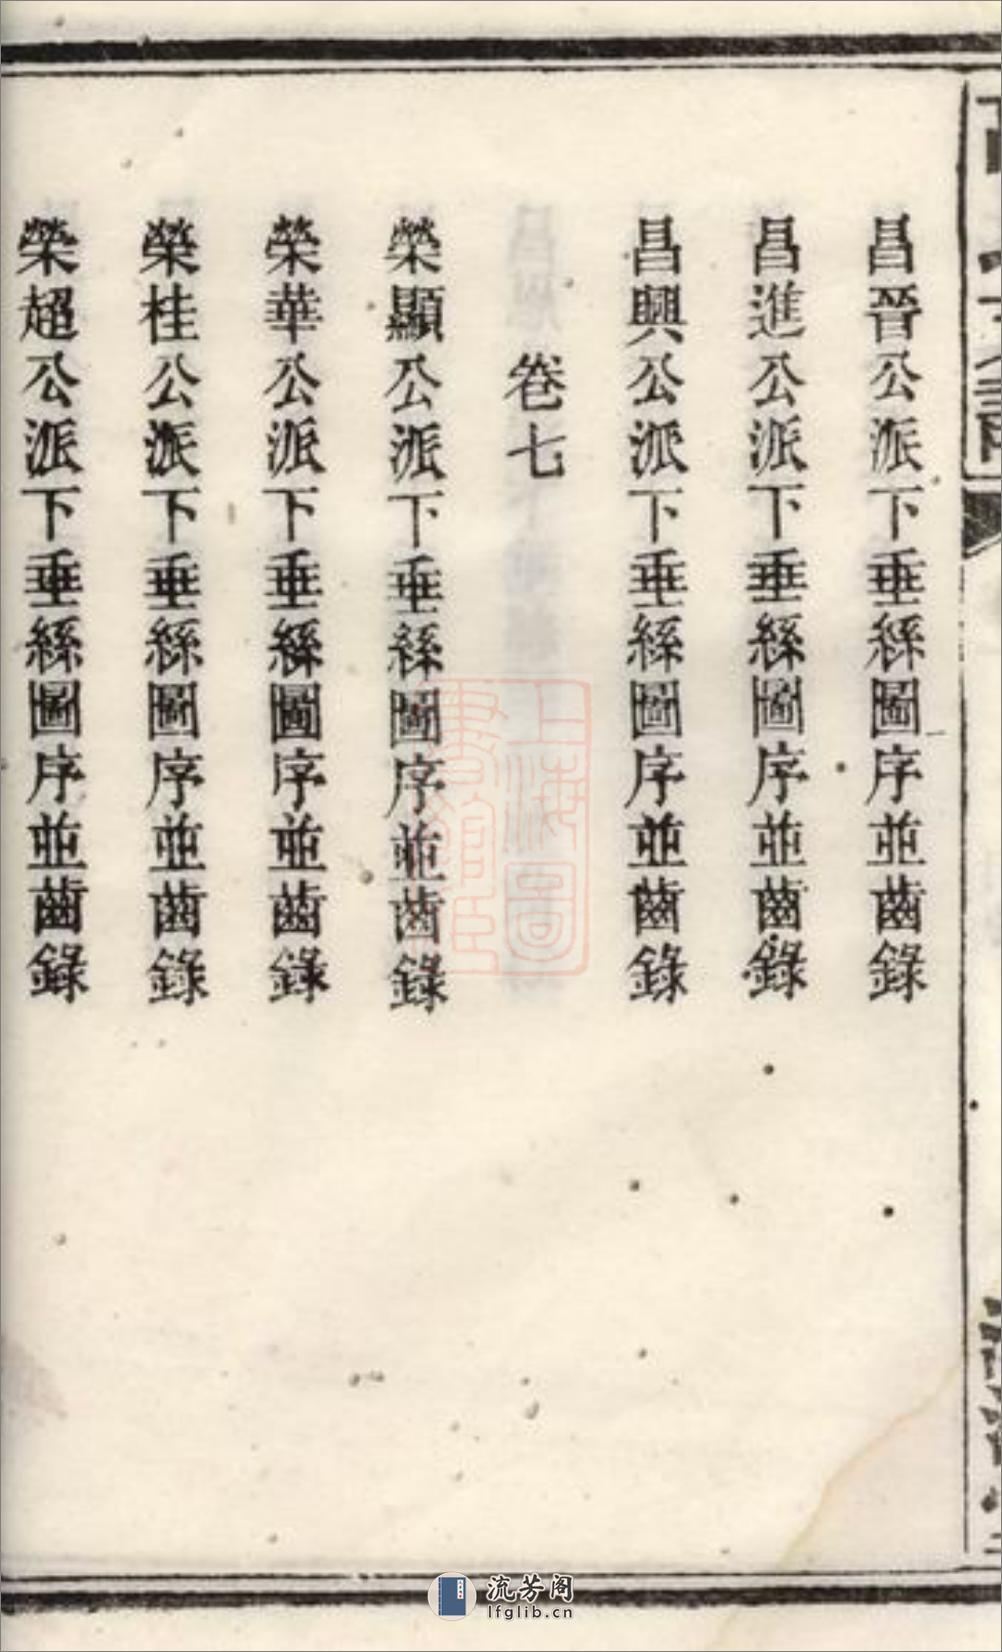 昌晉公派下垂絲圖序並齒錄
昌進公派下垂絲圖序並齒錄
昌興公派下垂絲圖序並齒錄
卷七
榮顯公派下垂絲圖序並齒錄
榮華公派下垂絲圖序並齒錄
榮桂公派下垂絲圖序並齒錄
榮超公派下垂絲圖序並齒錄
上海圖書館藏
流芳阁
lfglib.cn